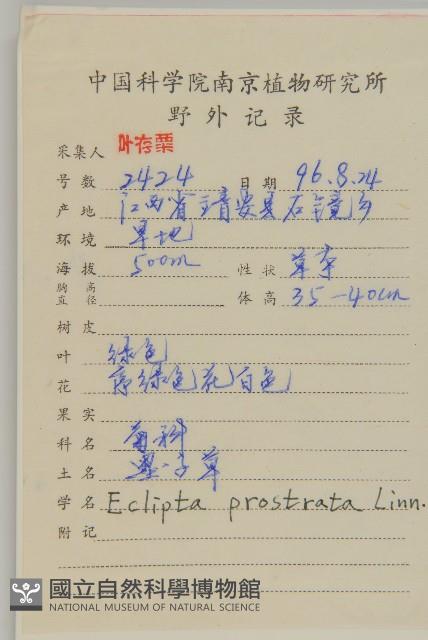 中国科学院南京植物研究所
野外记录
采集人 叶存粟
号数 2424 日期 96.8.24
产地 江西省靖安县石镜乡
环境 旱地
海拔 500m 性状 草本
胸高直径 体高 35-40cm
树皮
叶 绿色
花 绿色 花白色
果实
科名 菊科
土名 墨汁草
学名 Eclipta prostrata Linn.
附记
國立自然科學博物館
NATIONAL MUSEUM OF NATURAL SCIENCE